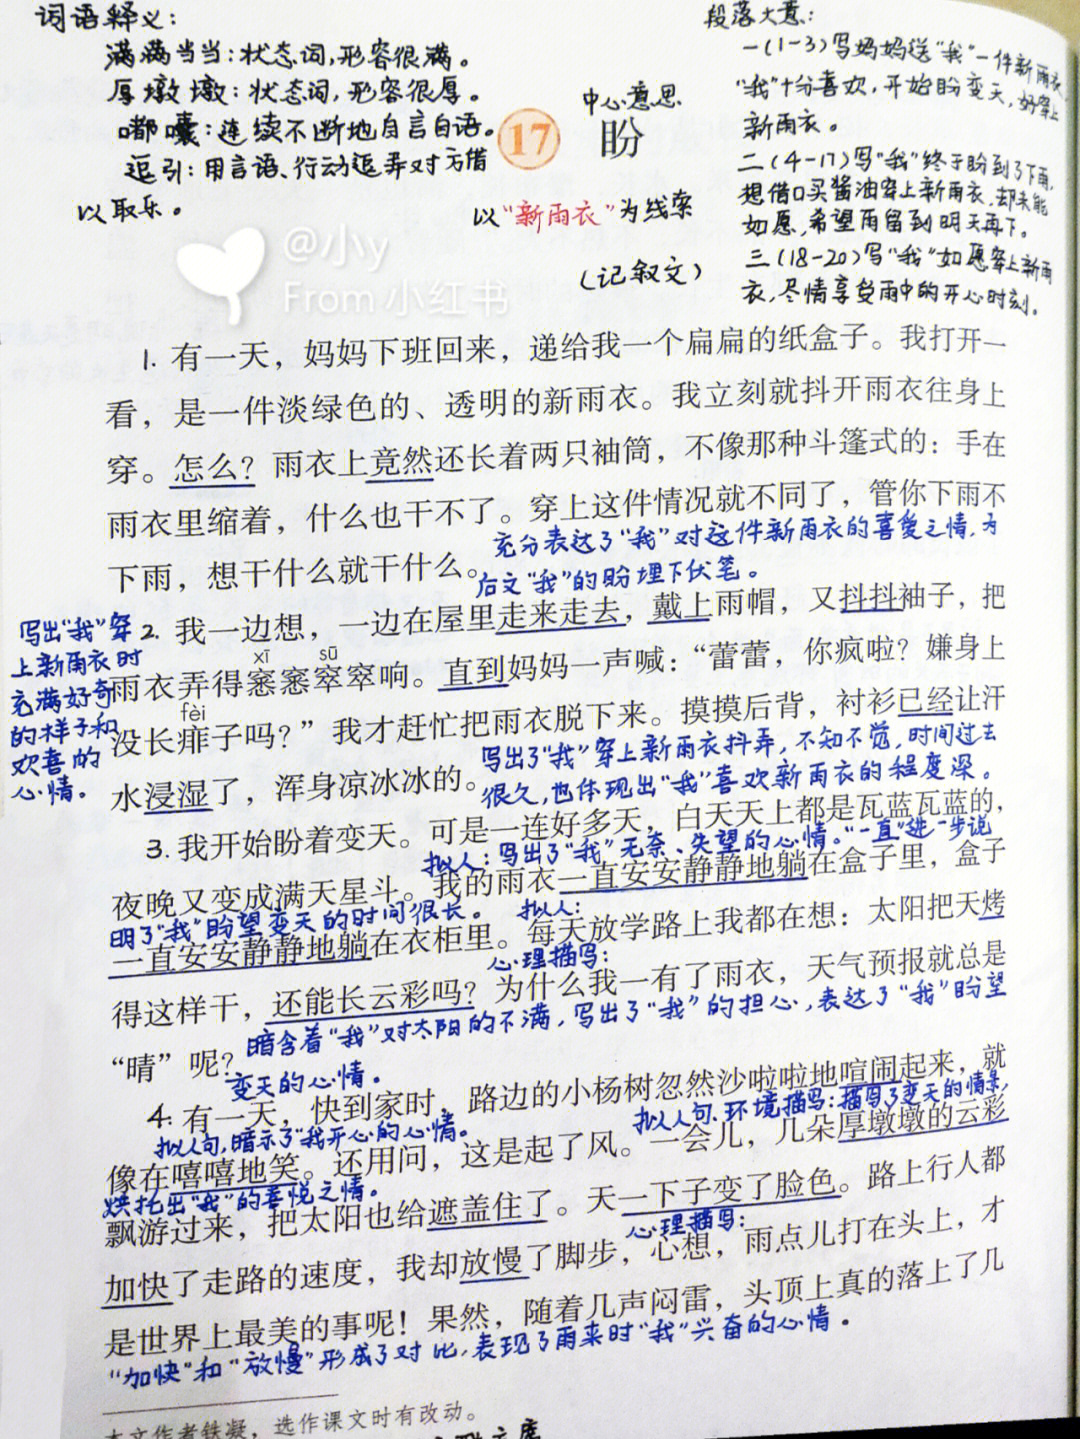 词语释义：
满满当当：状态词，形容很满。
厚墩墩：状态词，形容很厚。
嘟囔：连续不断地自言自语。
逗引：用言语、行动逗弄对方借
以取乐。
17 盼
中心意思
以“新雨衣”为线索
（记叙文）
段落大意：
一（1-3）写妈妈送“我”一件新雨衣，
“我”十分喜欢，开始盼变天，好穿上
新雨衣。
二（4-17）写“我”终于盼到了下雨，
想借口买酱油穿上新雨衣，却未能
如愿，希望雨留到明天再下。
三（18-20）写“我”如愿穿上新雨
衣，尽情享受雨中的开心时刻。
@小y
From 小红书
1. 有一天，妈妈下班回来，递给我一个扁扁的纸盒子。我打开一
看，是一件淡绿色的、透明的新雨衣。我立刻就抖开雨衣往身上
穿。怎么？雨衣上竟然还长着两只袖筒，不像那种斗篷式的：手在
雨衣里缩着，什么也干不了。穿上这件情况就不同了，管你下雨不
下雨，想干什么就干什么。
充分表达了“我”对这件新雨衣的喜爱之情，为
后文“我”的盼埋下伏笔。
2. 我一边想，一边在屋里走来走去，戴上雨帽，又抖抖袖子，把
xī sū
雨衣弄得窸窸窣窣响。直到妈妈一声喊：“蕾蕾，你疯啦？嫌身上
fèi
没长痱子吗？”我才赶忙把雨衣脱下来。摸摸后背，衬衫已经让汗
水浸湿了，浑身凉冰冰的。
写出“我”穿
上新雨衣时
充满好奇
的样子和
欢喜的
心情。
写出了“我”穿上新雨衣抖弄，不知不觉，时间过去
很久，也体现出“我”喜欢新雨衣的程度深。
3. 我开始盼着变天。可是一连好多天，白天天上都是瓦蓝瓦蓝的，
拟人：写出了“我”无奈、失望的心情。“一直”进一步说
夜晚又变成满天星斗。我的雨衣一直安安静静地躺在盒子里，盒子
明了“我”盼望变天的时间很长。
拟人：
一直安安静静地躺在衣柜里。每天放学路上我都在想：太阳把天烤
心理描写：
得这样干，还能长云彩吗？为什么我一有了雨衣，天气预报就总是
暗含着“我”对太阳的不满，写出了“我”的担心，表达了“我”盼望
“晴”呢？
变天的心情。
4. 有一天，快到家时，路边的小杨树忽然沙啦啦地喧闹起来，就
拟人句，暗示了“我开心的心情。
拟人句、环境描写：描写了变天的情景，
像在嘻嘻地笑。还用问，这是起了风。一会儿，几朵厚墩墩的云彩
烘托出“我”的喜悦之情。
飘游过来，把太阳也给遮盖住了。天一下子变了脸色。路上行人都
心理描写：
加快了走路的速度，我却放慢了脚步，心想，雨点儿打在头上，才
是世界上最美的事呢！果然，随着几声闷雷，头顶上真的落上了几
“加快”和“放慢”形成了对比，表现了雨来时“我”兴奋的心情。
本文作者铁凝，选作课文时有改动。